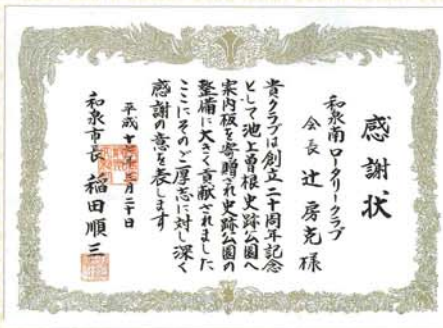 感謝状
和泉南ロータリークラブ
会長 辻 房克 様
貴クラブは創立二十周年記念
として池上曽根史跡公園へ
案内板を寄贈され史跡公園の
整備に大きく貢献されました
ここにそのご厚志に対し深く
感謝の意を表します
平成十三年三月二十日
和泉市長 稲田順三